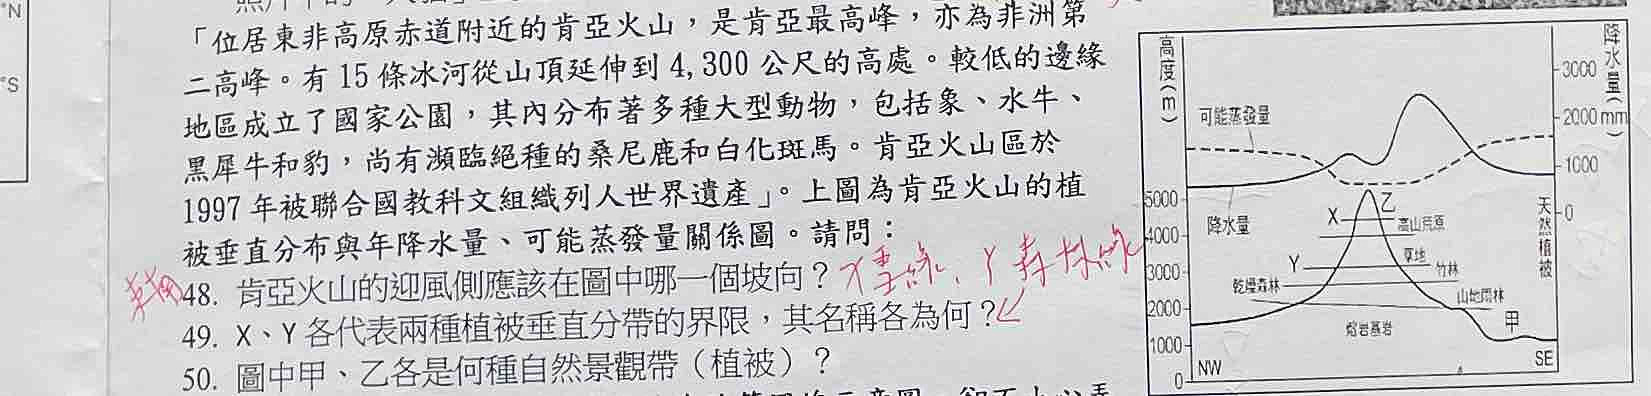 °N
°S
「位居東非高原赤道附近的肯亞火山，是肯亞最高峰，亦為非洲第
二高峰。有 15 條冰河從山頂延伸到 4,300 公尺的高處。較低的邊緣
地區成立了國家公園，其內分布著多種大型動物，包括象、水牛、
黑犀牛和豹，尚有瀕臨絕種的桑尼鹿和白化斑馬。肯亞火山區於
1997 年被聯合國教科文組織列入世界遺產」。上圖為肯亞火山的植
被垂直分布與年降水量、可能蒸發量關係圖。請問：
東南
48. 肯亞火山的迎風側應該在圖中哪一個坡向？
X雪線、Y森林線
49. X、Y 各代表兩種植被垂直分帶的界限，其名稱各為何？
50. 圖中甲、乙各是何種自然景觀帶（植被）？
高度(m)
降水量(mm)
3000
2000
1000
0
可能蒸發量
降水量
5000
4000
3000
2000
1000
0
天然植被
X
乙
高山荒原
Y
草地
竹林
乾燥森林
山地雨林
熔岩基岩
甲
NW
SE